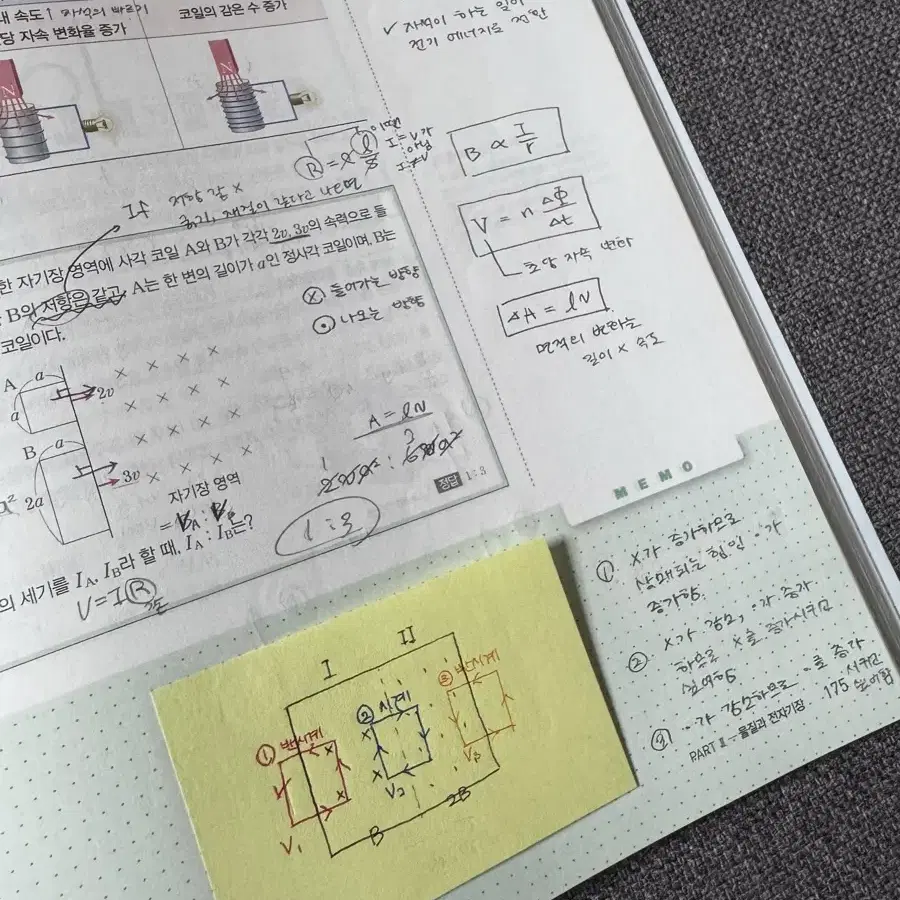 내 속도↑ 자석의 빠르기
당 자속 변화율 증가
코일의 감은 수 증가
N
N
✓ 자석이 하는 일이
전기 에너지로 전환
If 저항 같 x
굵기, 재질이 같다고 나오면
이땐
I = V가
아님
I ≠ V
B ∝ I/r
V = n ΔΦ/Δt
초당 자속 변화
ΔA = lv
면적의 변화는
길이 x 속도
한 자기장 영역에 사각 코일 A와 B가 각각 2v, 3v의 속력으로 들
B의 저항은 같고, A는 한 변의 길이가 a인 정사각 코일이며, B는
코일이다.
ⓧ 들어가는 방향
⊙ 나오는 방향
A a
a
2v
B a
2a
3v
자기장 영역
A = lv
1 3
1 : 3
정답 1 : 3
의 세기를 IA, IB라 할 때, IA : IB는?
V = IR
MEMO
① x가 증가하므로
상쇄되는 힘인 ·가
증가함.
② x가 감소, ·가 증가
하므로 x를 증가시키고
싶어함
·가 감소하므로 ·를 증가
시키고
싶어함
PART Ⅱ - 물질과 전자기장 175
I II
① 반시계
② 시계
③ 반시계
V₁
V₂
V₃
B
2B